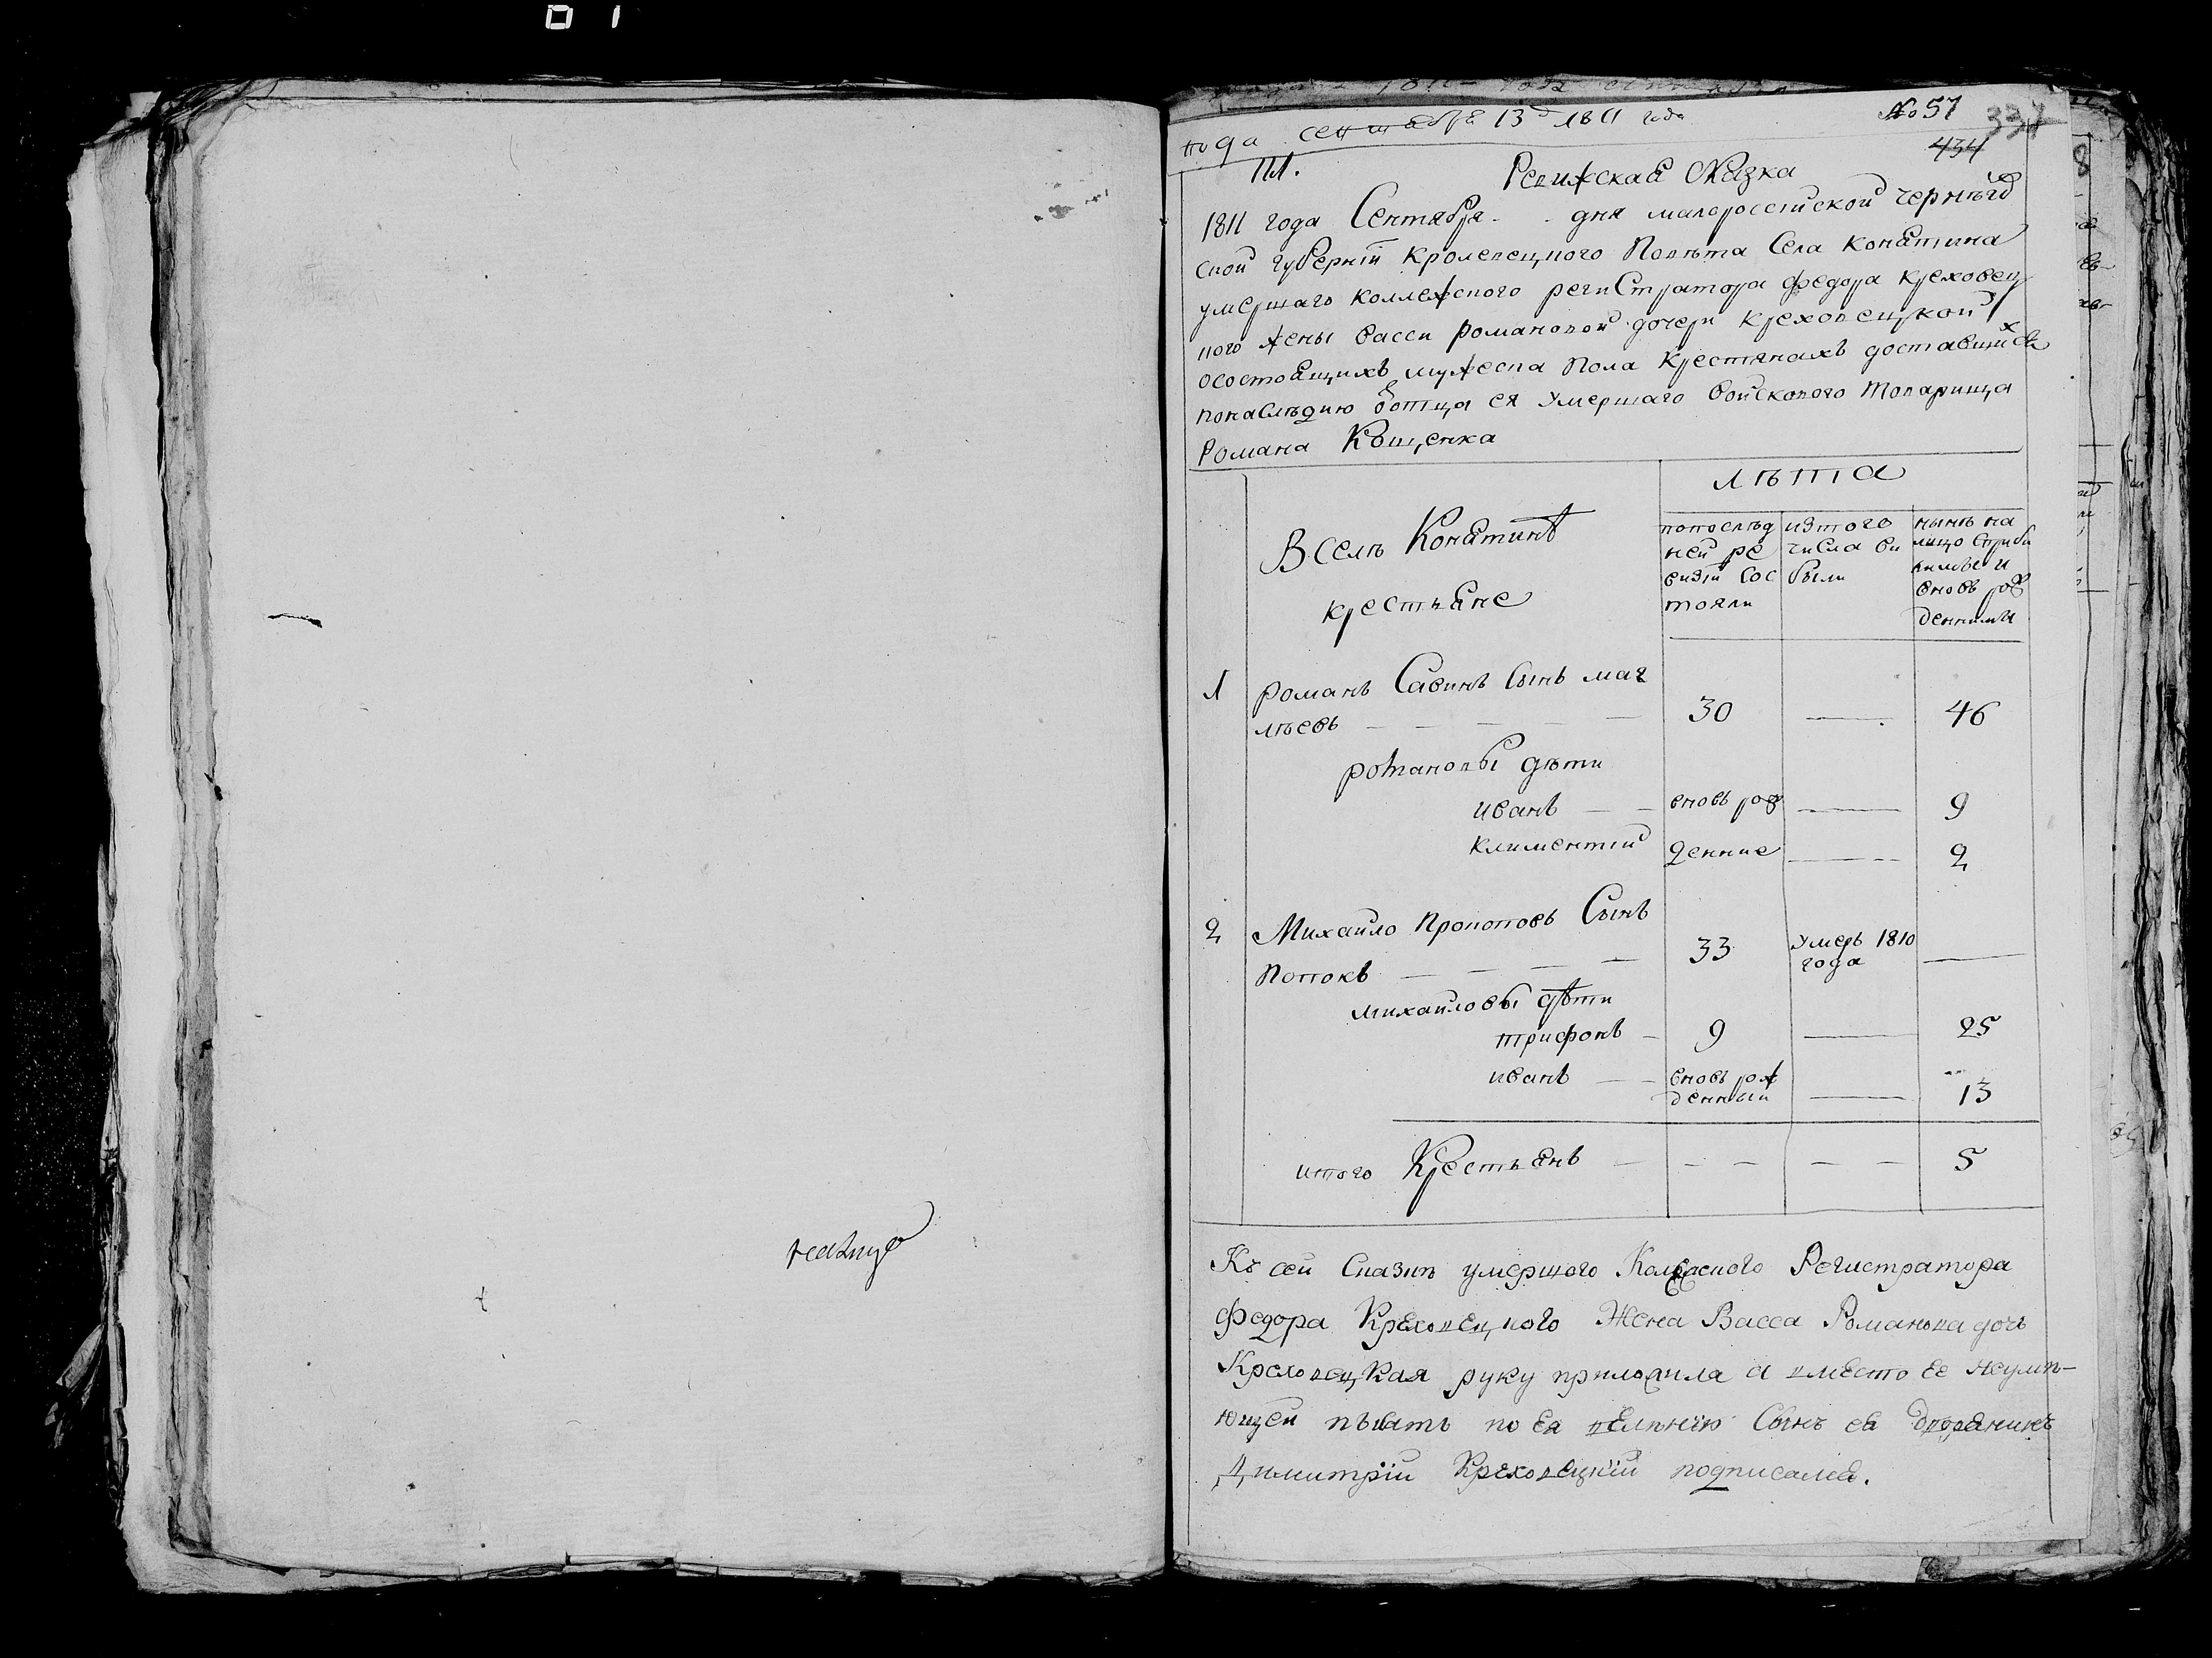 пода сентября 13 д 1811 года
№ 57
334
434
Ревижская Сказка
1811 года Сентября - - дня малоросiйской чернѣгов
ской губернiи Кролевецкого Повѣта Села Конятина
умершаго коллежского регистратора федора креховец
кого жены васси романовой дочери креховецкой
осостоящихъ мужеска пола крестянахъ доставшихся
понаслѣдию отца ея умершаго войскового товарища
Романа Кощенка
лѣта
Вселѣ Конятинѣ
крестьяне
попослѣд
ней ре
визiи сос
тояли
изтого
числа ви
были
нынѣ на
лицо
вновь рож
денними
1 романъ Савинъ Сынъ маг
лѣевъ — — — — — 30 — 46
романовы дѣти
иванъ — — вновь рож — 9
климентiй денние — 2
2 Михайло Прокоповъ Сынъ
Попокъ — — — — 33 умеръ 1810
года —
михайловы дѣти
трифонъ — 9 — 25
иванъ — — вновь рож
денный — 13
итого Крестьянъ — — — — — 5
Къ сей Сказкѣ умершого Колежского Регистратора
Федора Креховецкого Жена Васса Романова дочь
Креховецкая руку приложила а вместо ее неумѣ-
ющей пысать по ея велѣнiю Сынъ ея дворянинъ
Димитрiй Креховецкiй подписался.